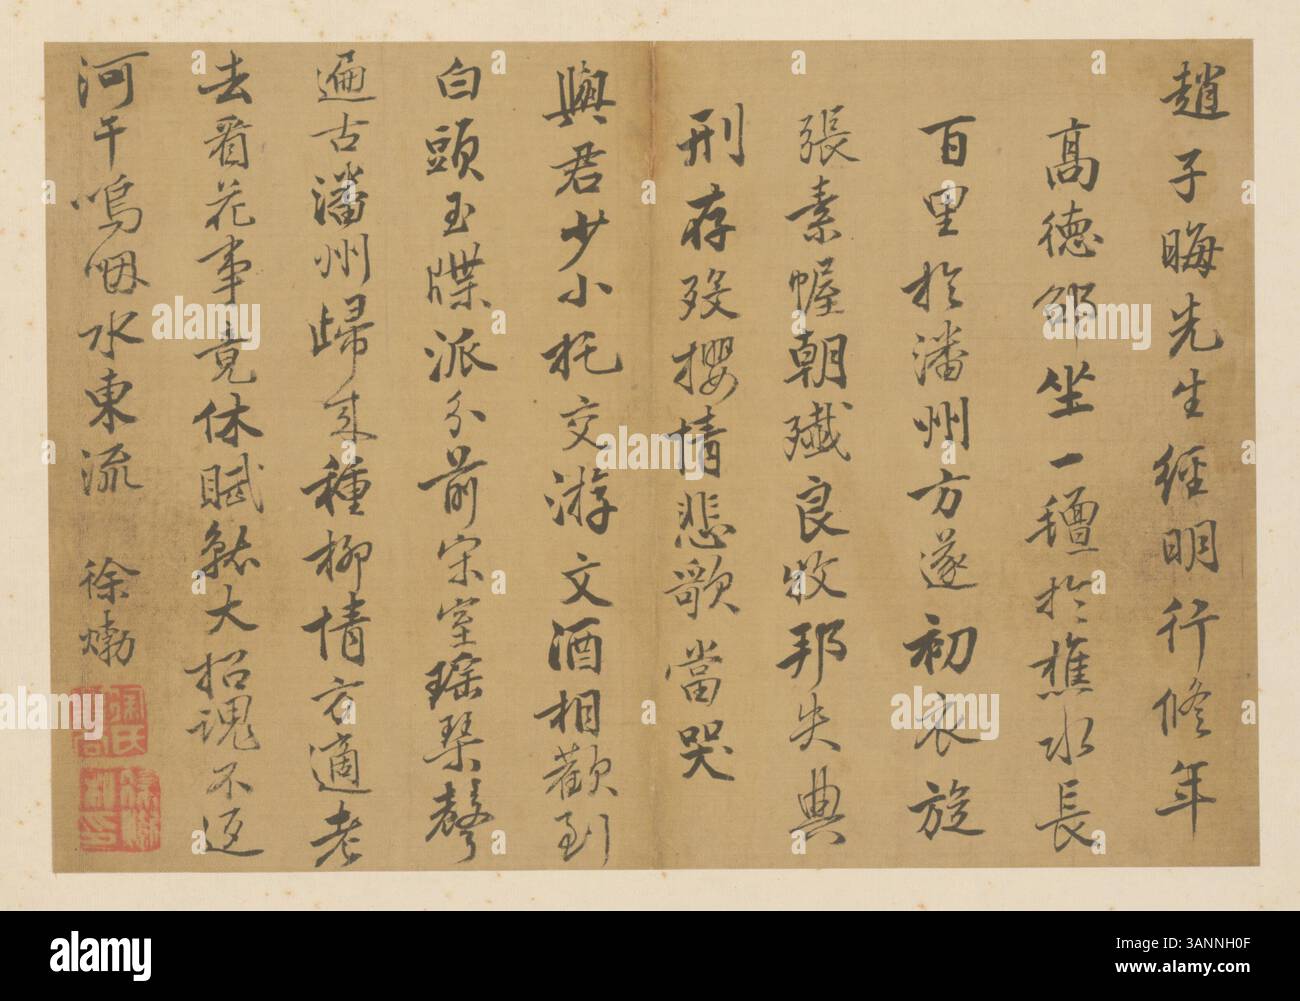 趙子晦先生經明行脩年
高德邵坐一氊於樵水長
百里於潘州方遂初衣旋
張素幄朝殲良牧邦失典
刑存歿攖情悲歌當哭
與君少小托交游文酒相歡到
白頭玉牒派分前宋室瑤琴聲
遍古潘州歸來種柳情方適老
去看花事竟休賦就大招魂不返
河干嗚咽水東流 徐𤊹
alamy
Image ID: 3ANNH0F
www.alamy.com